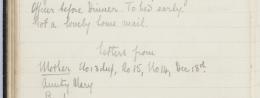 Officer before Dinner. To bed early.
Not a lovely home mail.
Letters from
Mother No 13 dup, No 15, No 14, Dec 18th.
Aunty Mary